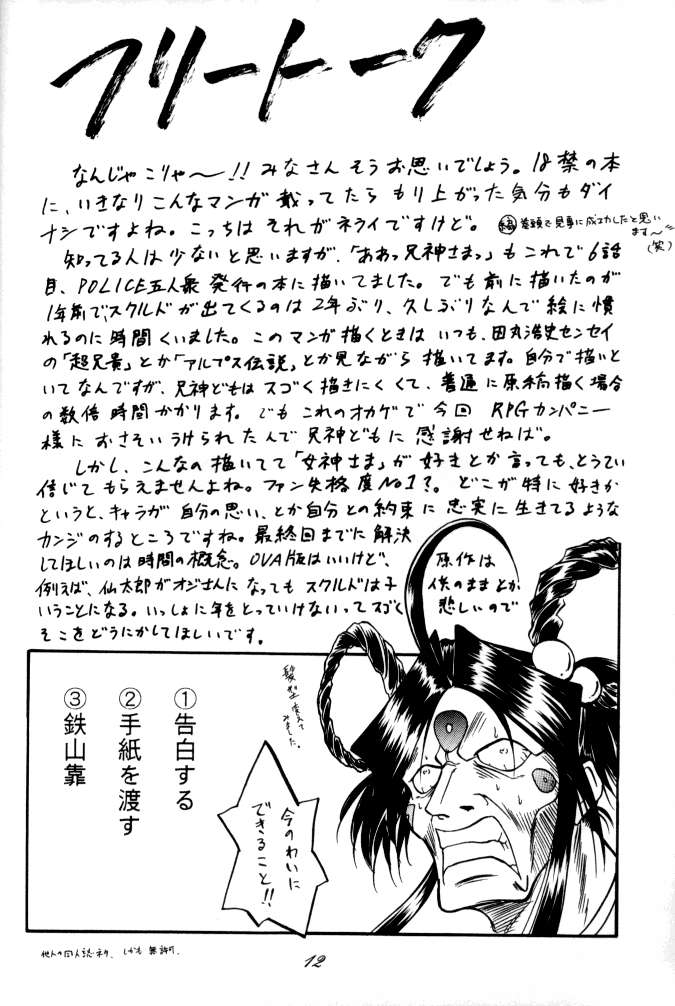 フリートーク
なんじゃこりゃ〜!! みなさん そうお思いでしょう。18禁の本
に、いきなりこんなマンガ載ってたら もり上がった気分もダイ
ナシですよね。こっちは それがネライですけど。
編 巻頭で見事に成功したと思い
ます〜
(笑)
知ってる人は少ないと思いますが、「ああっ兄神さまっ」もこれで6話
目、POLICE五人衆 発行の本に描いてました。でも前に描いたのが
1年前で、スクルドが出てくるのは2年ぶり、久しぶりなんで絵に慣
れるのに時間くいました。このマンガ描くときは いつも、田丸浩史センセイ
の「超兄貴」とか「アルプス伝説」とか見ながら 描いてます。自分で描いと
いてなんですが、兄神どもは スゴく描きにくくて、普通に原稿描く場合
の数倍 時間かかります。でも これのオカゲで 今回 RPGカンパニー
様に おさそいうけられたんで兄神どもに感謝せねば。
しかし、こんなの描いてて「女神さま」が好きとか言っても、とうてい
信じてもらえませんよね。ファン失格度No1?。どこが特に好きか
というと、キャラが自分の思い、とか自分との約束に忠実に生きてるような
カンジのするところですね。最終回までに解決
してほしいのは時間の概念。OVA版はいいけど、原作は
例えば、仙太郎がオジさんになっても スクルドは子供のままとか
いうことになる。いっしょに年をとっていけないってスゴく悲しいので
そこをどうにかしてほしいです。
髪型変えて
みました。
①告白する
②手紙を渡す
③鉄山靠
今のわいに
できること!!
他人の同人誌ネタ。しかも無許可。
12